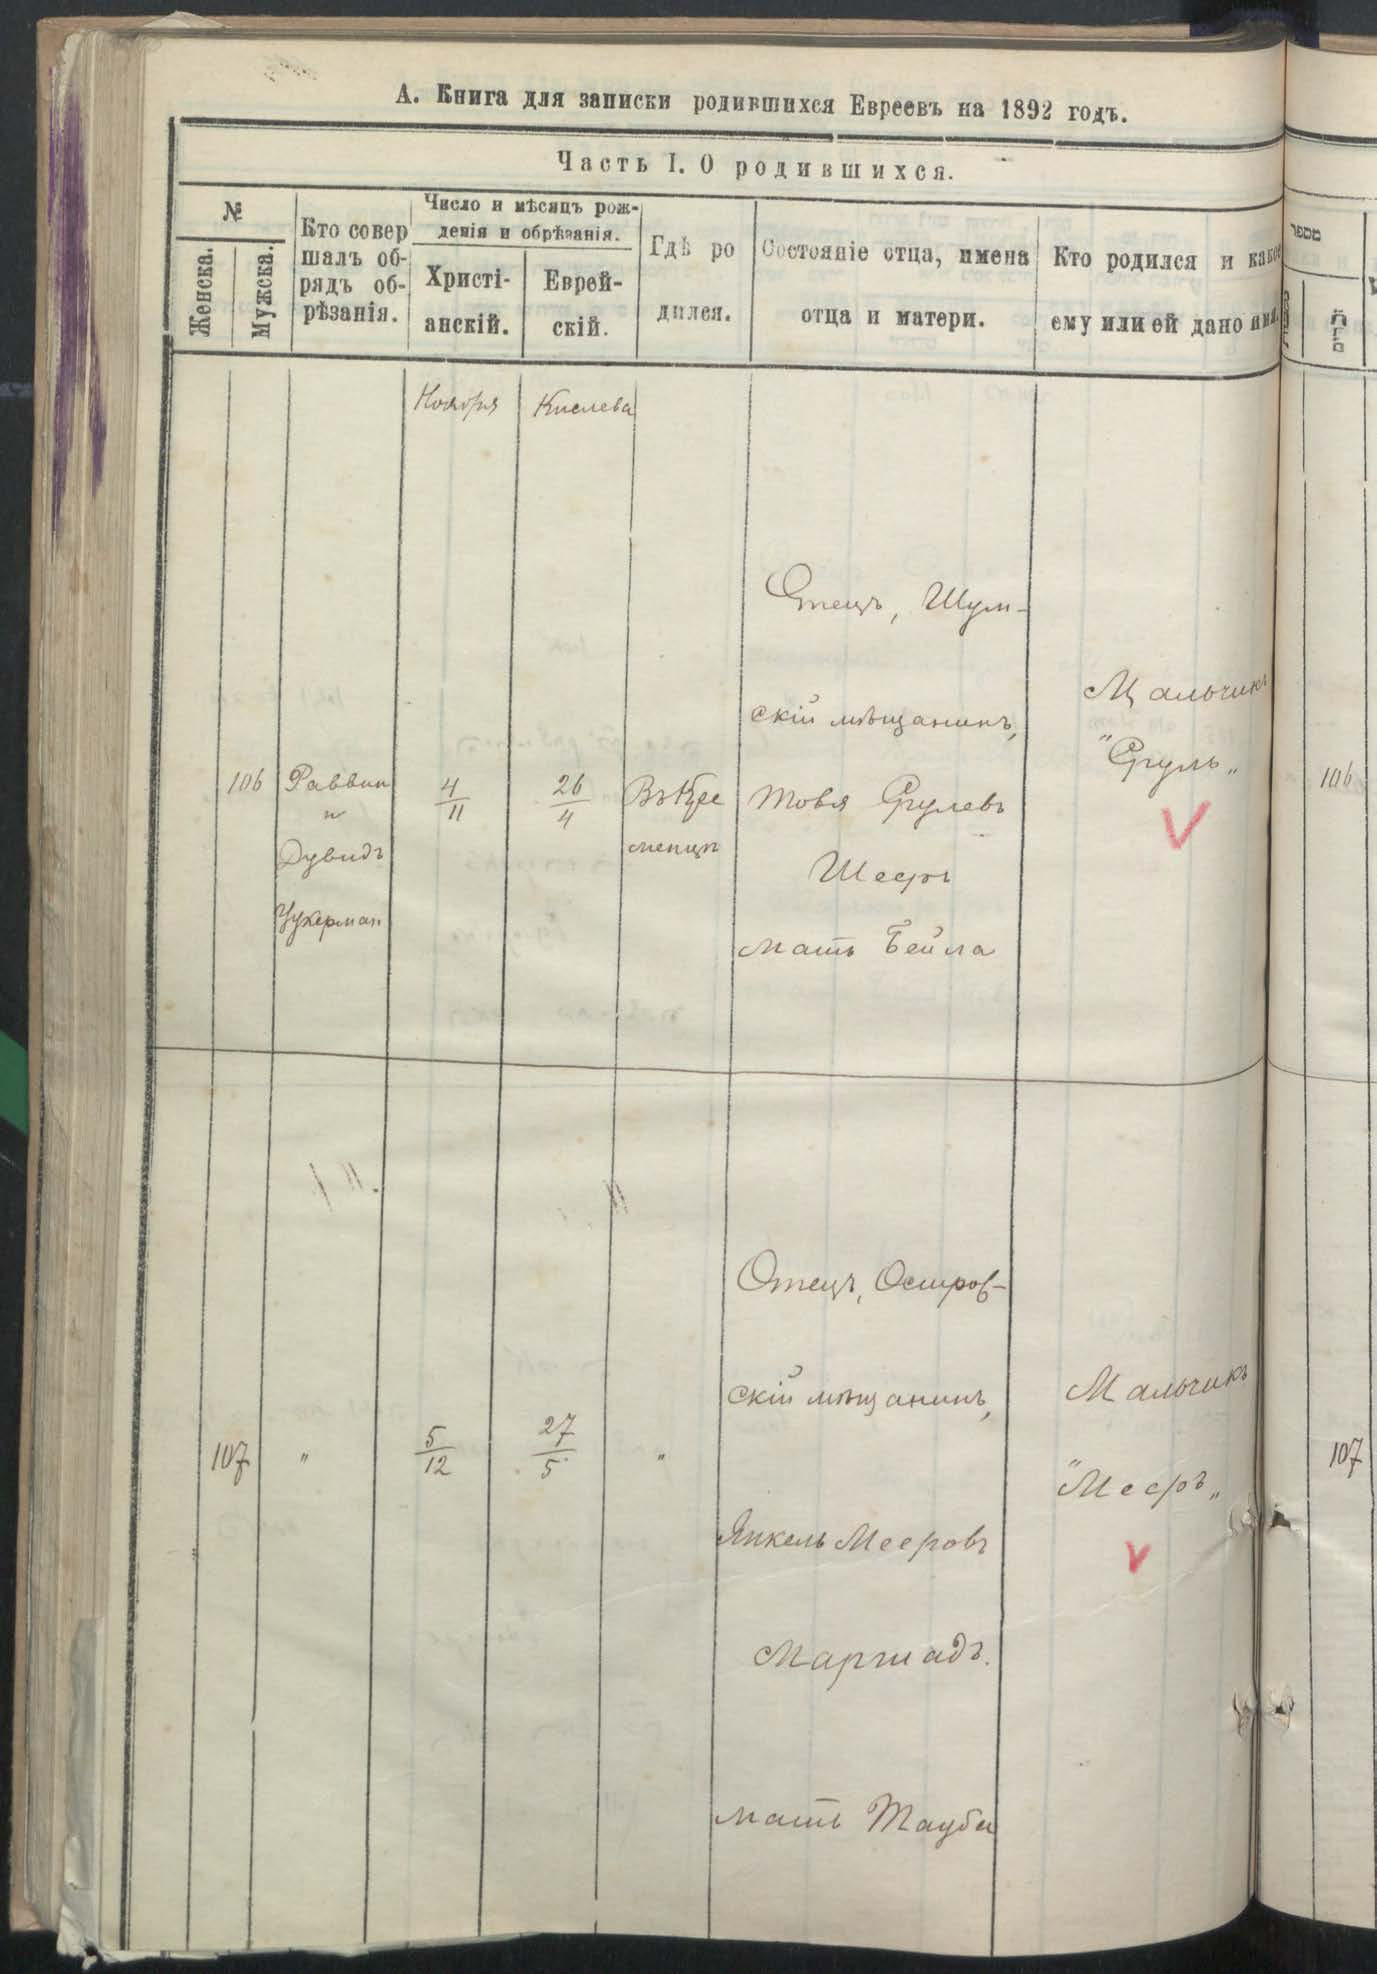 А. Книга для записки родившихся Евреевъ на 1892 годъ.
Часть I. О родившихся.
№
Женска.
Мужска.
Кто совер
шалъ об-
рядъ об-
рѣзанія.
Число и мѣсяцъ рож-
денія и обрѣзанія.
Христі-
анскій.
Еврей-
скій.
Гдѣ ро
дился.
Состояніе отца, имена
отца и матери.
Кто родился и какое
ему или ей дано имя.
מספר
Ноября
Кислева
106
Раввин
и
Дувидъ
Цукерман
4
11
26
4
Въ Кре
менцѣ
Отецъ, Шум-
скій мѣщанинъ,
Товя Сруlевъ
Шееръ
мать Бейла
Мальчикъ
"Сруль"
106
107
"
5
12
27
5
"
Отецъ, Остров-
скій мѣщанинъ,
Янкель Мееровъ
мать Тауба
Мальчикъ
"Мееръ"
107